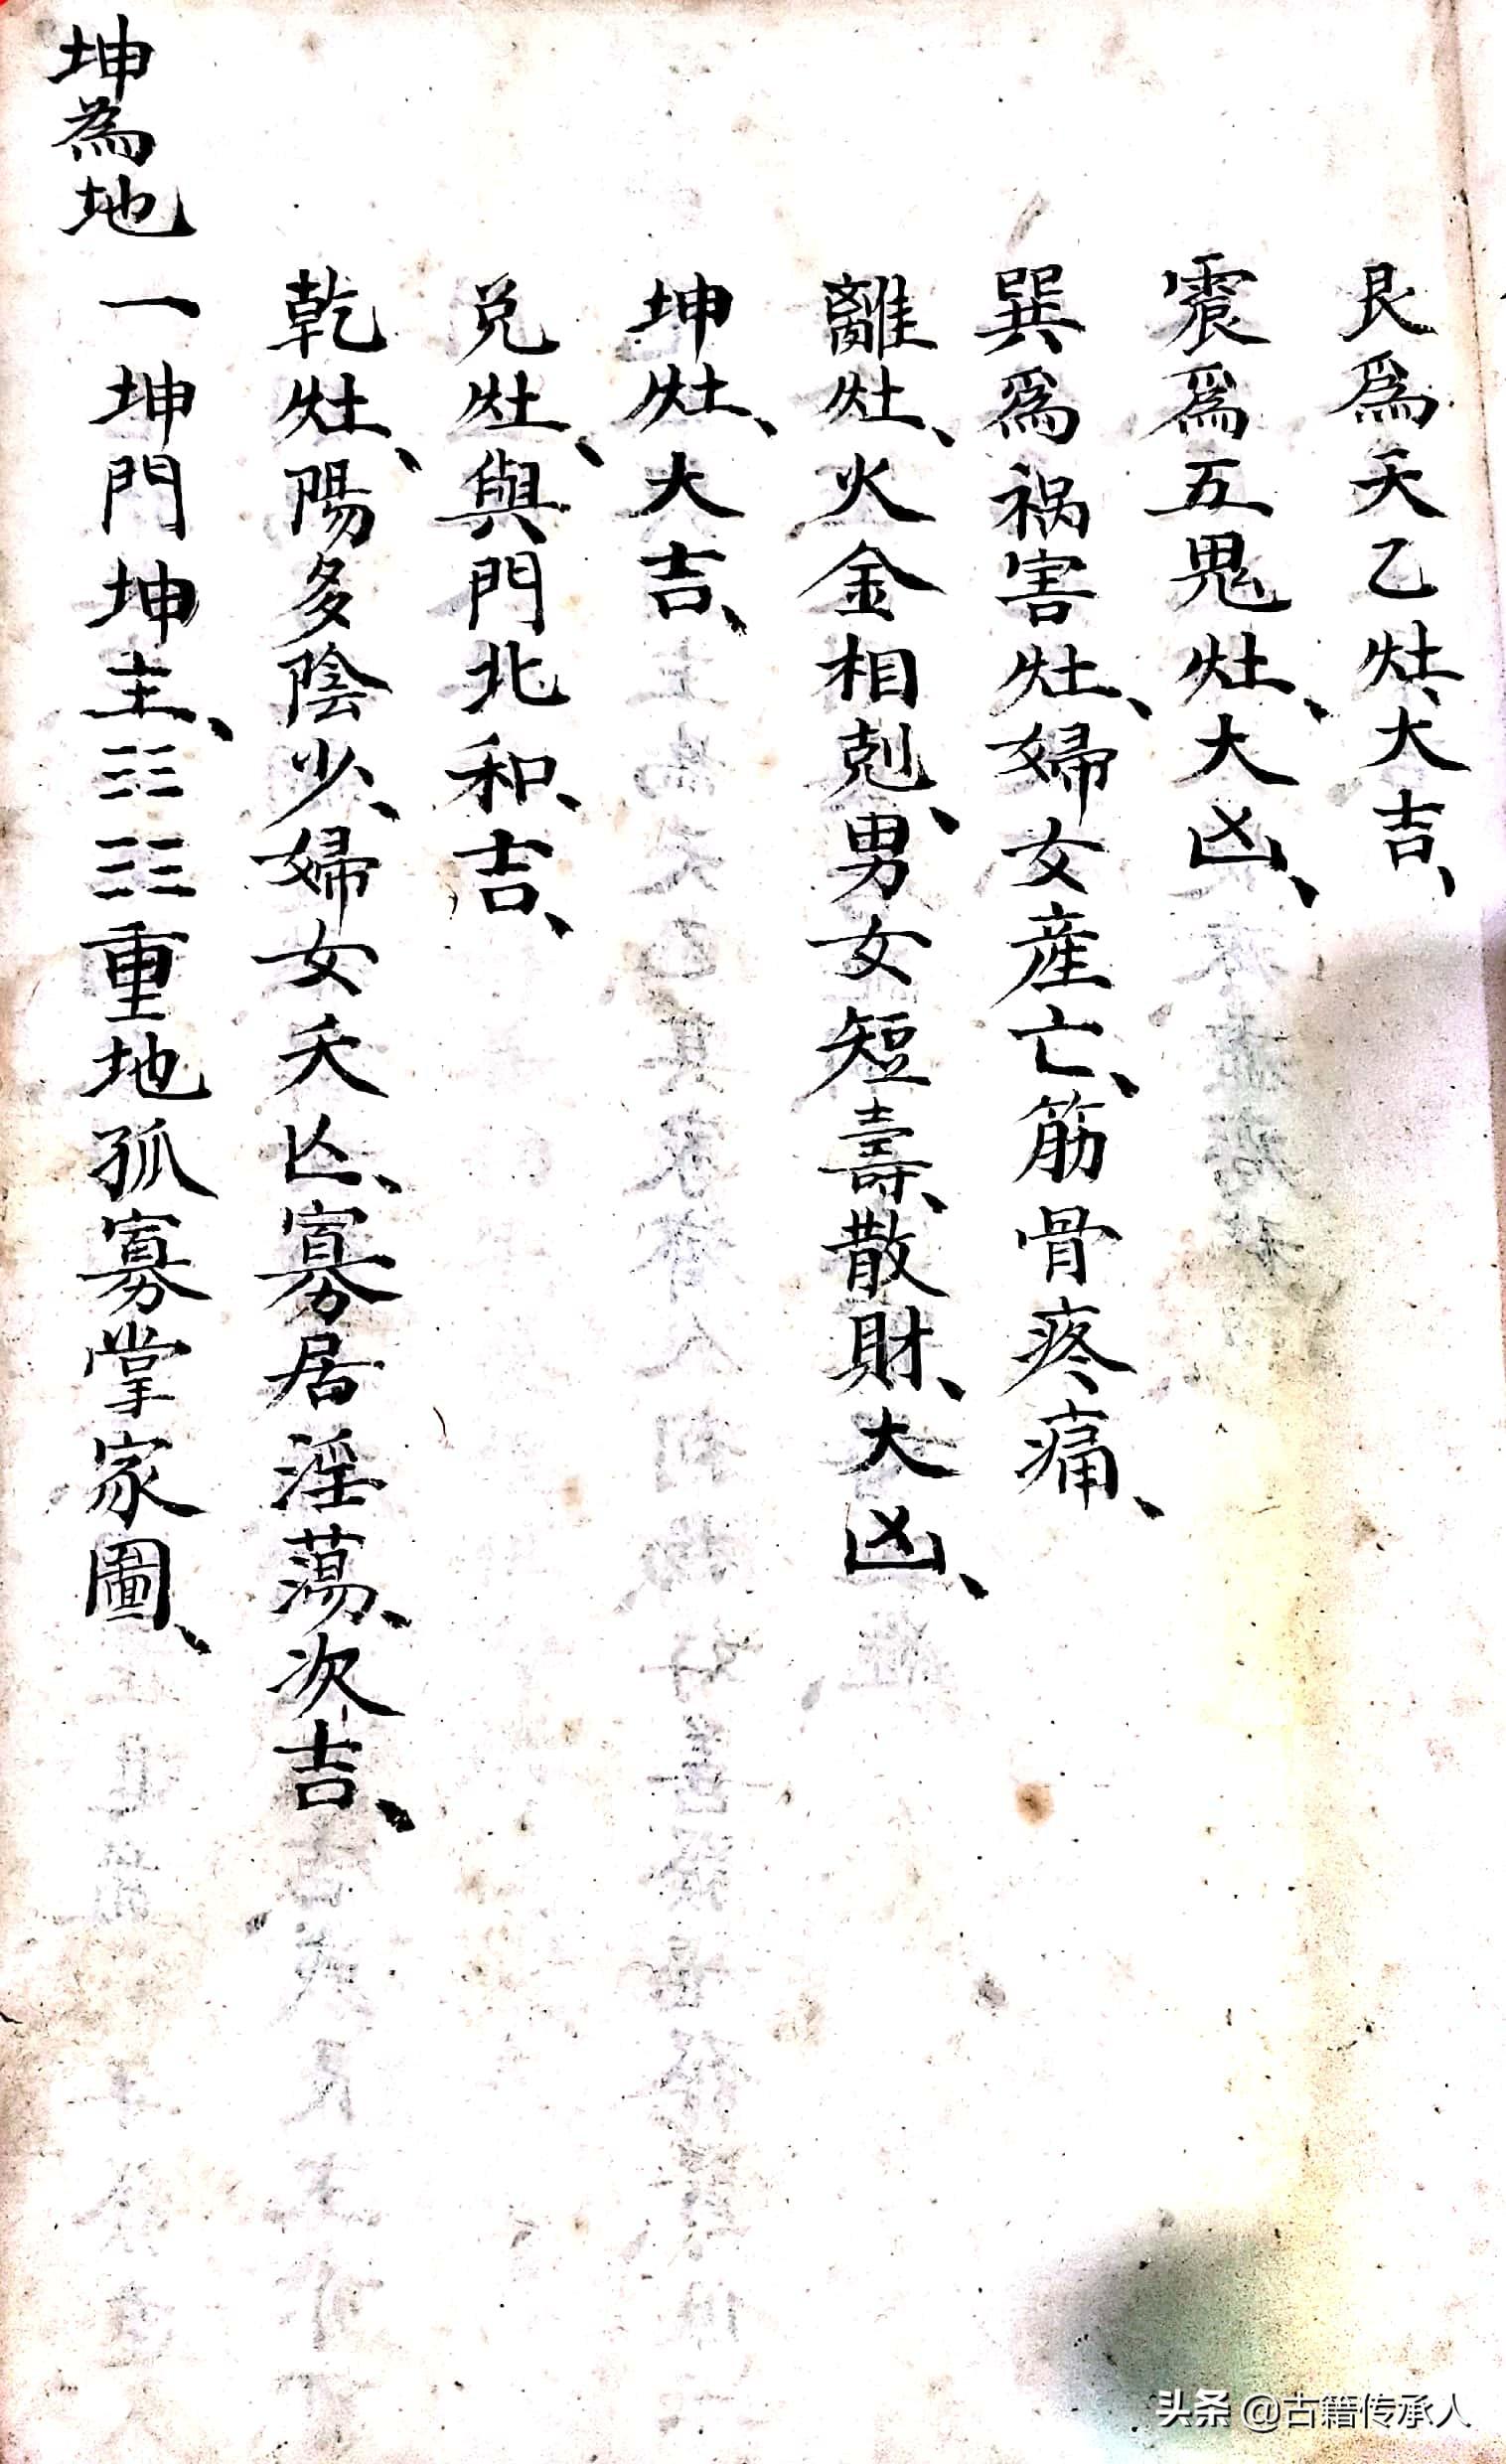 艮爲天乙灶、大吉、
震爲五鬼灶、大凶、
巽爲祸害灶、婦女産亡、筋骨疼痛、
離灶、火金相剋、男女短壽、散財、大凶、
坤灶、大吉、
兑灶、與門北和、吉、
乾灶、陽多陰少、婦女夭亾、寡居淫蕩、次吉、
坤為地 一坤門坤主、☷☷重地孤寡掌家圖、
头条 @古籍传承人